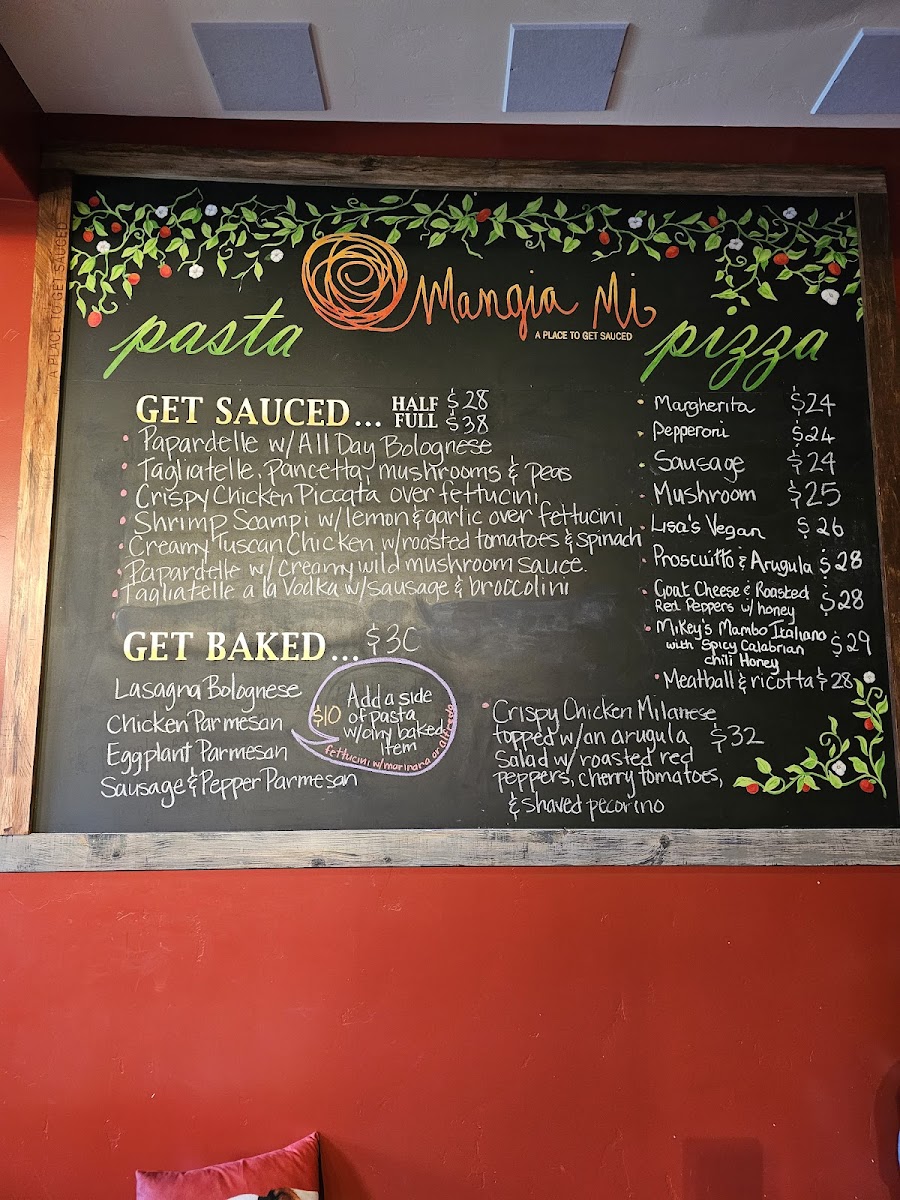 A PLACE TO GET SAUCED
Mangia Mi
A PLACE TO GET SAUCED
pasta
GET SAUCED... HALF $28
FULL $38
Papardelle w/All Day Bolognese
Tagliatelle, pancetta, mushrooms & peas
Crispy Chicken Piccata over fettucini
Shrimp Scampi w/lemon & garlic over fettucini
Creamy Tuscan Chicken w/roasted tomatoes & spinach
Papardelle w/ Creamy wild mushroom sauce.
Tagliatelle a la Vodka w/sausage & broccolini
GET BAKED... $30
Lasagna Bolognese
Chicken Parmesan
Eggplant Parmesan
Sausage & Pepper Parmesan
$10 Add a side
of pasta
w/any baked
item
fettucini w/marinara or alfredo
pizza
Margherita $24
Pepperoni $24
Sausage $24
Mushroom $25
Lisa's Vegan $26
Proscuitto & Arugula $28
Goat Cheese & Roasted
Red Peppers w/ honey $28
Mikey's Mambo Italiano
with Spicy Calabrian $29
chili Honey
Meatball & ricotta $28
Crispy Chicken Milanese
topped w/an arugula $32
Salad w/ roasted red
peppers, cherry tomatoes,
& shaved pecorino